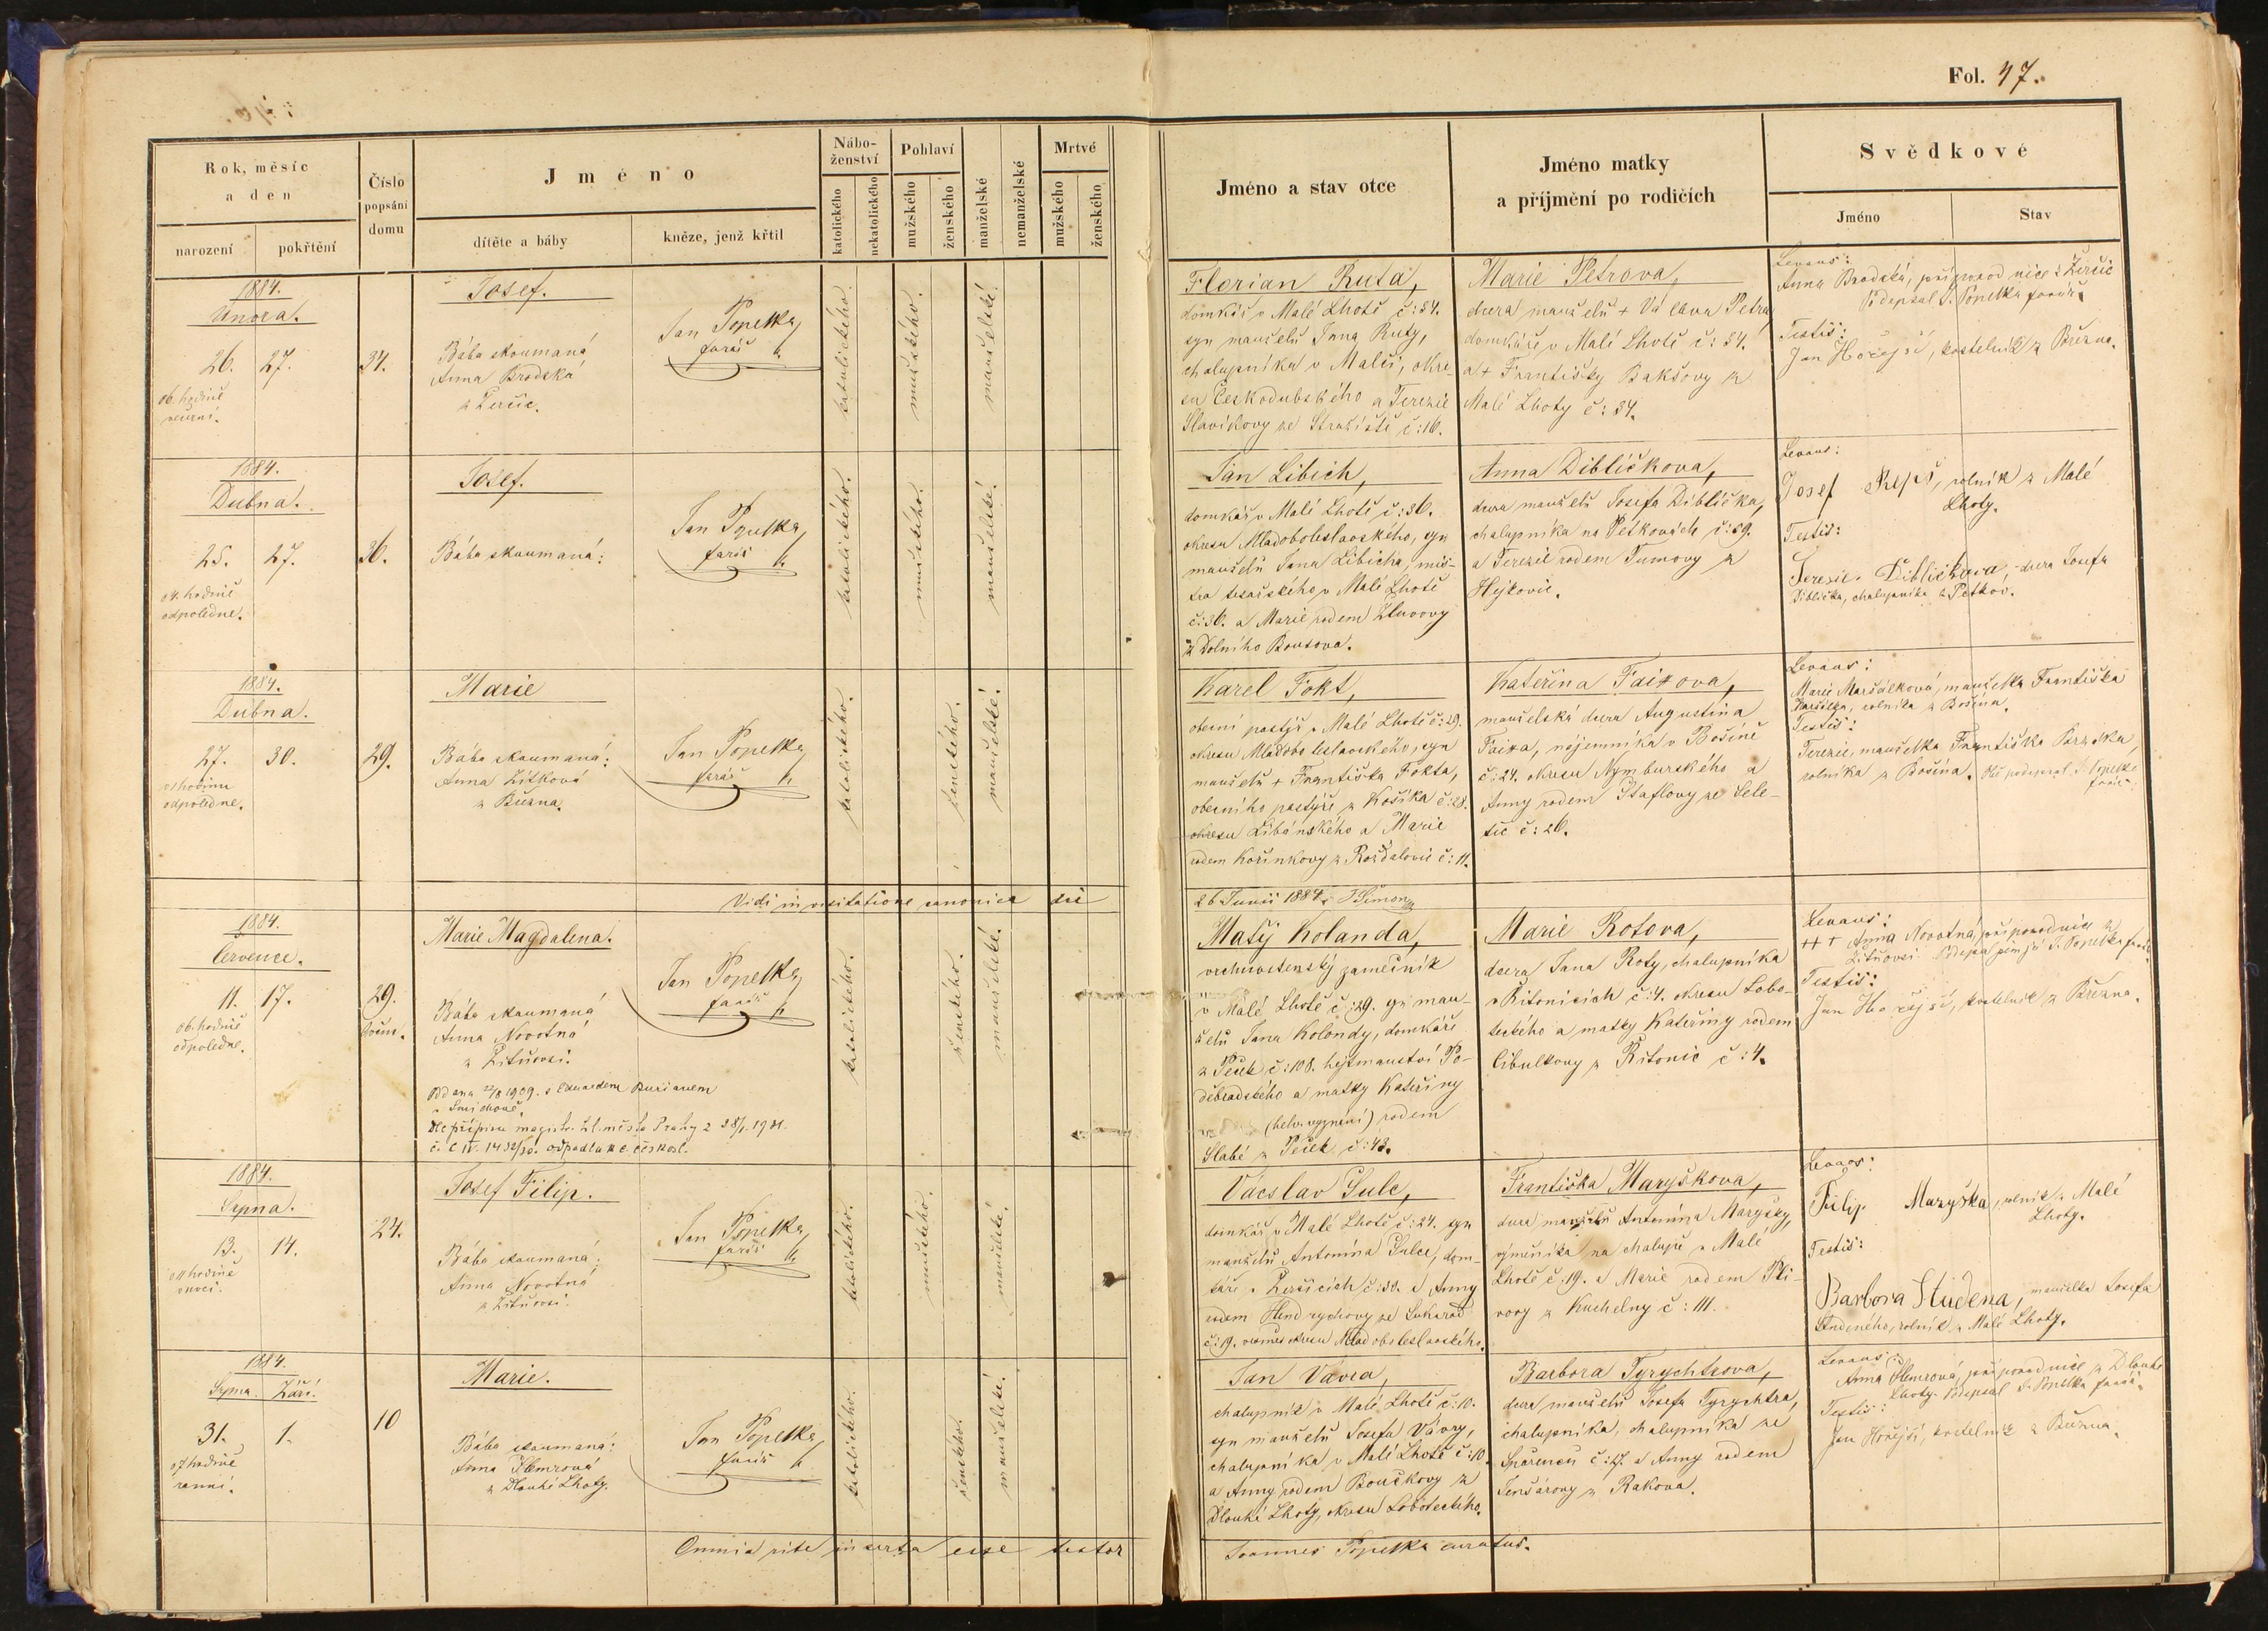 Fol. 47.
Rok, měsíc
a den
narození
pokřtění
Číslo
popsání
domu
Jméno
dítěte a báby
kněze, jenž křtil
Nábo-
ženství
katolického
nekatolického
Pohlaví
mužského
ženského
manželské
nemanželské
Mrtvé
mužského
ženského
Jméno a stav otce
Jméno matky
a příjmění po rodičích
Svědkové
Jméno
Stav
1884.
Února.
26. 27.
o 6. hodině
večerní.
34.
Josef.
Bába zkoumaná
Anna Brodská
z Žerčic.
Jan Popelka,
farář
katolického.
mužského.
manželské.
Florian Ruta,
domkář v Malé Lhotě č: 34.
syn manželů Jana Ruty,
chalupníka v Malči, okre-
su Českodubského a Terezie
Slavíkovy ze Stražiště č: 16.
Marie Petrova,
dcera manželů + Václava Petra
domkáře v Malé Lhotě č: 34.
a + Františky Bakšovy z
Malé Lhoty č: 34.
Levans:
Anna Brodská, připorodnice z Žerčic
Podepsal J. Popelka farář.
Testis:
Jan Hořejší, kostelník z Března.
1884.
Dubna.
25. 27.
o 4. hodině
odpoledne.
36.
Josef.
Bába zkoumaná:
Jan Popelka,
farář
katolického.
mužského.
manželské.
Jan Libich,
domkář v Malé Lhotě č: 36.
okresu Mladoboleslavského, syn
manželů Jana Libicha, mis-
tra tesařského v Malé Lhotě
č: 36. a Marie rodem
z Dolního Bousova.
Anna Dibličkova,
dcera manželů Josefa Diblička,
chalupníka na Pětikovách č: 29.
a Terezie rodem Tumovy z
Levans:
Josef Repš, rolník z Malé
Lhoty.
Testis:
Terezie Dibličkova, dcera Josefa
Diblička, chalupníka z Petkov.
1884.
Dubna.
27. 30.
hodinu
odpoledne.
29.
Marie
Bába zkoumaná:
Anna Zítková
z Března.
Jan Popelka,
farář
katolického.
ženského.
manželské.
Karel Fokt,
obecní pastýř v Malé Lhotě č: 29.
okresu Mladoboleslavského, syn
manželů + Františka Fokta,
obecního pastýře z Košíka č: 28.
okresu Libánského a Marie
rodem Kořínkovy z Rožďalovic č: 11.
Kateřina
manželská dcera Augustina
nájemníka v Bošíně
č: 24. okresu Nymburského a
Anny rodem Štaflovy ze Sele-
tic č: 26.
Levans:
Marie Maršálková, manželka Františka
Maršálka, rolníka z Bošína.
Testis:
Terezie, manželka Františka
rolníka z Bošína. podepsal J. Popelka
farář
Vidi in visitatione canonica die
26 Junii 1884.
1884.
Července.
11. 17.
o 6. hodině
odpoledne.
29.
Marie Magdalena.
Bába zkoumaná
Anna Novotná
z Žitňovsi.
Oddana 22/8 1909. s Eduardem Burianem
na Smíchově.
Dle přípisu magistr. hl. města Prahy z 28/1. 1931.
č. C IV. 1432/30. odpadla k c. českosl.
Jan Popelka,
farář
katolického.
ženského.
manželské.
Matěj Kolanda,
zámečník
v Malé Lhotě č: 29. syn man-
želů Jana Kolandy, domkáře
z Peček č: 108. hejtmanství Po-
děbradského a matky Kateřiny
(helv. vyznání) rodem
Slabé z Peček č: 43.
Marie Rotova,
dcera Jana Roty, chalupníka
v Řitonicích č: 4. okresu Lobo-
teckého a matky Kateřiny rodem
Cibulkovy z Řitonic č: 4.
Levans:
+++ Anna Novotná, připorodnice z
Žitňovsi Podepsal J. Popelka farář
Testis:
Jan Hořejší, kostelník z Března.
1884.
Srpna.
13. 14.
hodině
v noci.
24.
Josef Filip.
Bába zkoumaná:
Anna Novotná
z Žitňovsi.
Jan Popelka,
farář
katolického.
mužského.
manželské.
Václav Šulc,
domkář v Malé Lhotě č: 24. syn
manželů Antonína Šulce, dom-
káře v Žerčicích č: 30. a Anny
rodem Hendrychovy ze
č: 19. okresu Mladoboleslavského.
Františka Maryškova,
dcera manželů Antonína Maryšky,
výměníka na chalupě v Malé
Lhotě č: 19. a Marie rodem Pli-
vovy z Kuchelny č: 111.
Levans:
Filip Maryška, rolník z Malé
Lhoty.
Testis:
Barbora Studena, manželka Josefa
Studeného, rolník z Malé Lhoty.
1884.
Srpna. Září.
31. 1.
o 7 hodině
ranní.
10
Marie.
Bába zkoumaná:
Anna Šlemrová
z Dlouhé Lhoty.
Jan Popelka,
farář
katolického.
ženského.
manželské.
Jan Vávra,
chalupník v Malé Lhotě č: 10.
syn manželů Josefa Vávry,
chalupníka v Malé Lhotě č: 10.
a Anny rodem Boučkovy z
Dlouhé Lhoty, okresu Loboteckého.
Barbora Tyrychtrova,
dcera manželů Josefa Tyrychtra,
chalupníka, chalupníka ze
Spařence č: 27. a Anny rodem
Jenšárovy z Rakova.
Levans:
Anna Šlemrová, připorodnice z Dlouhé
Lhoty. Podepsal J. Popelka farář.
Testis:
Jan Hořejší, kostelník z Března.
Omnia rite inserta esse testor
Joannes Popelka curatus.